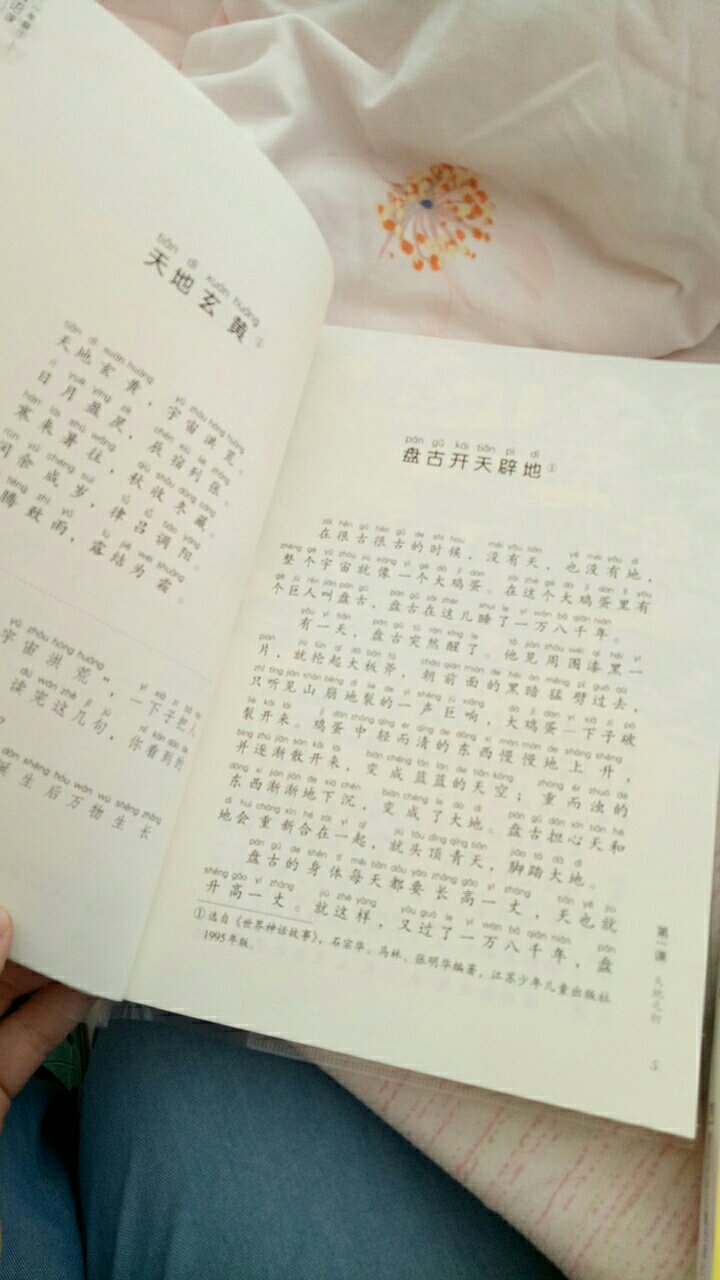 tiān dì xuán huāng
天地玄黄①
tiān dì xuán huāng yǔ zhòu hóng huāng
天地玄黄，宇宙洪荒。
rì yuè yíng zè chén xiù liè zhāng
日月盈昃，辰宿列张。
hán lái shǔ wǎng qiū shōu dōng cáng
寒来暑往，秋收冬藏。
rùn yú chéng suì lǜ lǚ tiáo yáng
闰余成岁，律吕调阳。
téng zhì yǔ lù jié wéi shuāng
腾致雨，露结为霜。
yǔ zhòu hóng huāng yí xià zi bǎ
宇宙洪荒”，一下子把人
dú wán zhè jǐ jù nǐ kàn dào
读完这几句，你看到的
dàn shēng hòu wàn wù shēng zhǎng
诞生后万物生长
pán gǔ kāi tiān pì dì
盘古开天辟地①
zài hěn gǔ hěn gǔ de shí hou méi yǒu tiān yě méi yǒu dì
在很古很古的时候，没有天，也没有地，
zhěng gè yǔ zhòu jiù xiàng yí gè dà jī dàn zài zhè ge dà jī dàn lǐ yǒu
整个宇宙就像一个大鸡蛋。在这个大鸡蛋里有
gè jù rén jiào pán gǔ pán gǔ zài zhèr shuì le yí wàn bā qiān nián
个巨人叫盘古，盘古在这儿睡了一万八千年。
yǒu yì tiān pán gǔ tū rán xǐng le tā jiàn zhōu wéi qī hēi yí
有一天，盘古突然醒了。他见周围漆黑一
piàn jiù lūn qǐ dà bǎn fǔ cháo qián miàn de hēi àn měng pī guò qù
片，就抡起大板斧，朝前面的黑暗猛劈过去，
zhǐ tīng jiàn shān bēng dì liè de yì shēng jù xiǎng dà jī dàn yí xià zi pò
只听见山崩地裂的一声巨响，大鸡蛋一下子破
liè kāi lái jī dàn zhōng qīng ér qīng de dōng xi màn màn de shàng shēng
裂开来。鸡蛋中轻而清的东西慢慢地上升，
bìng zhú jiàn sàn kāi lái biàn chéng lán lán de tiān kōng zhòng ér zhuó de
并逐渐散开来，变成蓝蓝的天空；重而浊的
dōng xi jiàn jiàn de xià chén biàn chéng le dà dì pán gǔ dān xīn tiān hé
东西渐渐地下沉，变成了大地。盘古担心天和
dì huì chóng xīn hé zài yì qǐ jiù tóu dǐng qīng tiān jiǎo tà dà dì
地会重新合在一起，就头顶青天，脚踏大地。
pán gǔ de shēn tǐ měi tiān dōu yào zhǎng gāo yí zhàng tiān yě jiù
盘古的身体每天都要长高一丈，天也就
shēng gāo yí zhàng jiù zhè yàng yòu guò le yí wàn bā qiān nián pán
升高一丈。就这样，又过了一万八千年，盘
①选自《世界神话故事》，石宗华、马林、张明华编著，江苏少年儿童出版社
1995年版。
第一课 天地之初
5